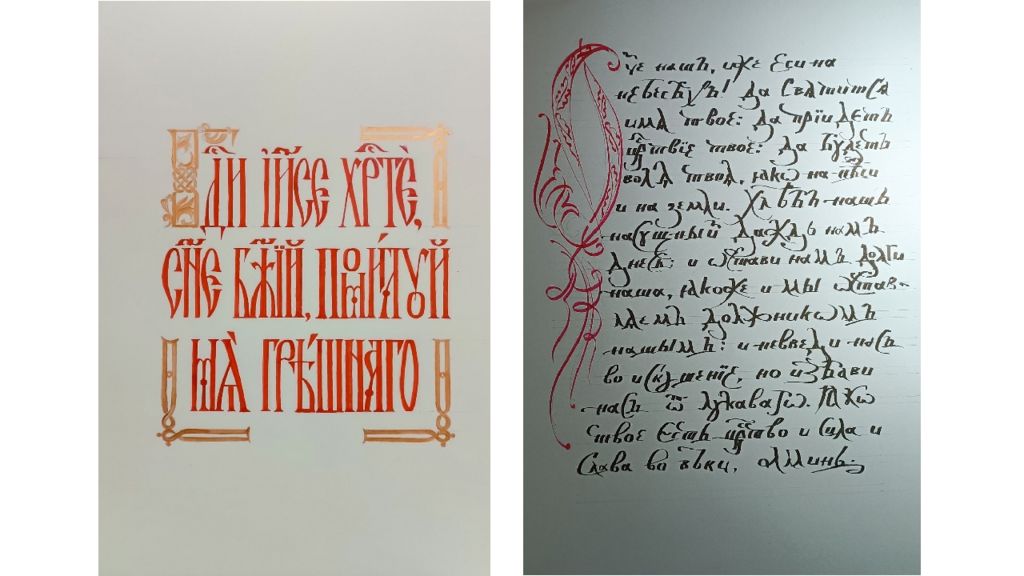 Гдⷭ҇и Іи҃се Хрⷭ҇тѐ,
Сн҃е Бж҃їй, поми́луй
мѧ̀ грѣ́шнаго
Ѻч҃е нашъ, иже еси на
небесѣхъ! да свѧтитсѧ
имѧ твое: да прїидетъ
црⷭ҇твїе твое: да будетъ
волѧ твоѧ, ꙗкѡ на нб҃си
и на земли. Хлѣбъ нашъ
насущный даждь намъ
днесь: и ѡстави намъ долги
наша, ꙗкоже и мы ѡставлѧемъ
должникѡмъ
нашымъ: и не введи насъ
во искушенїе, но избави
насъ ѿ лукавагѡ. Ꙗкѡ
твое есть црⷭ҇тво и сила и
слава во вѣки, аминь.